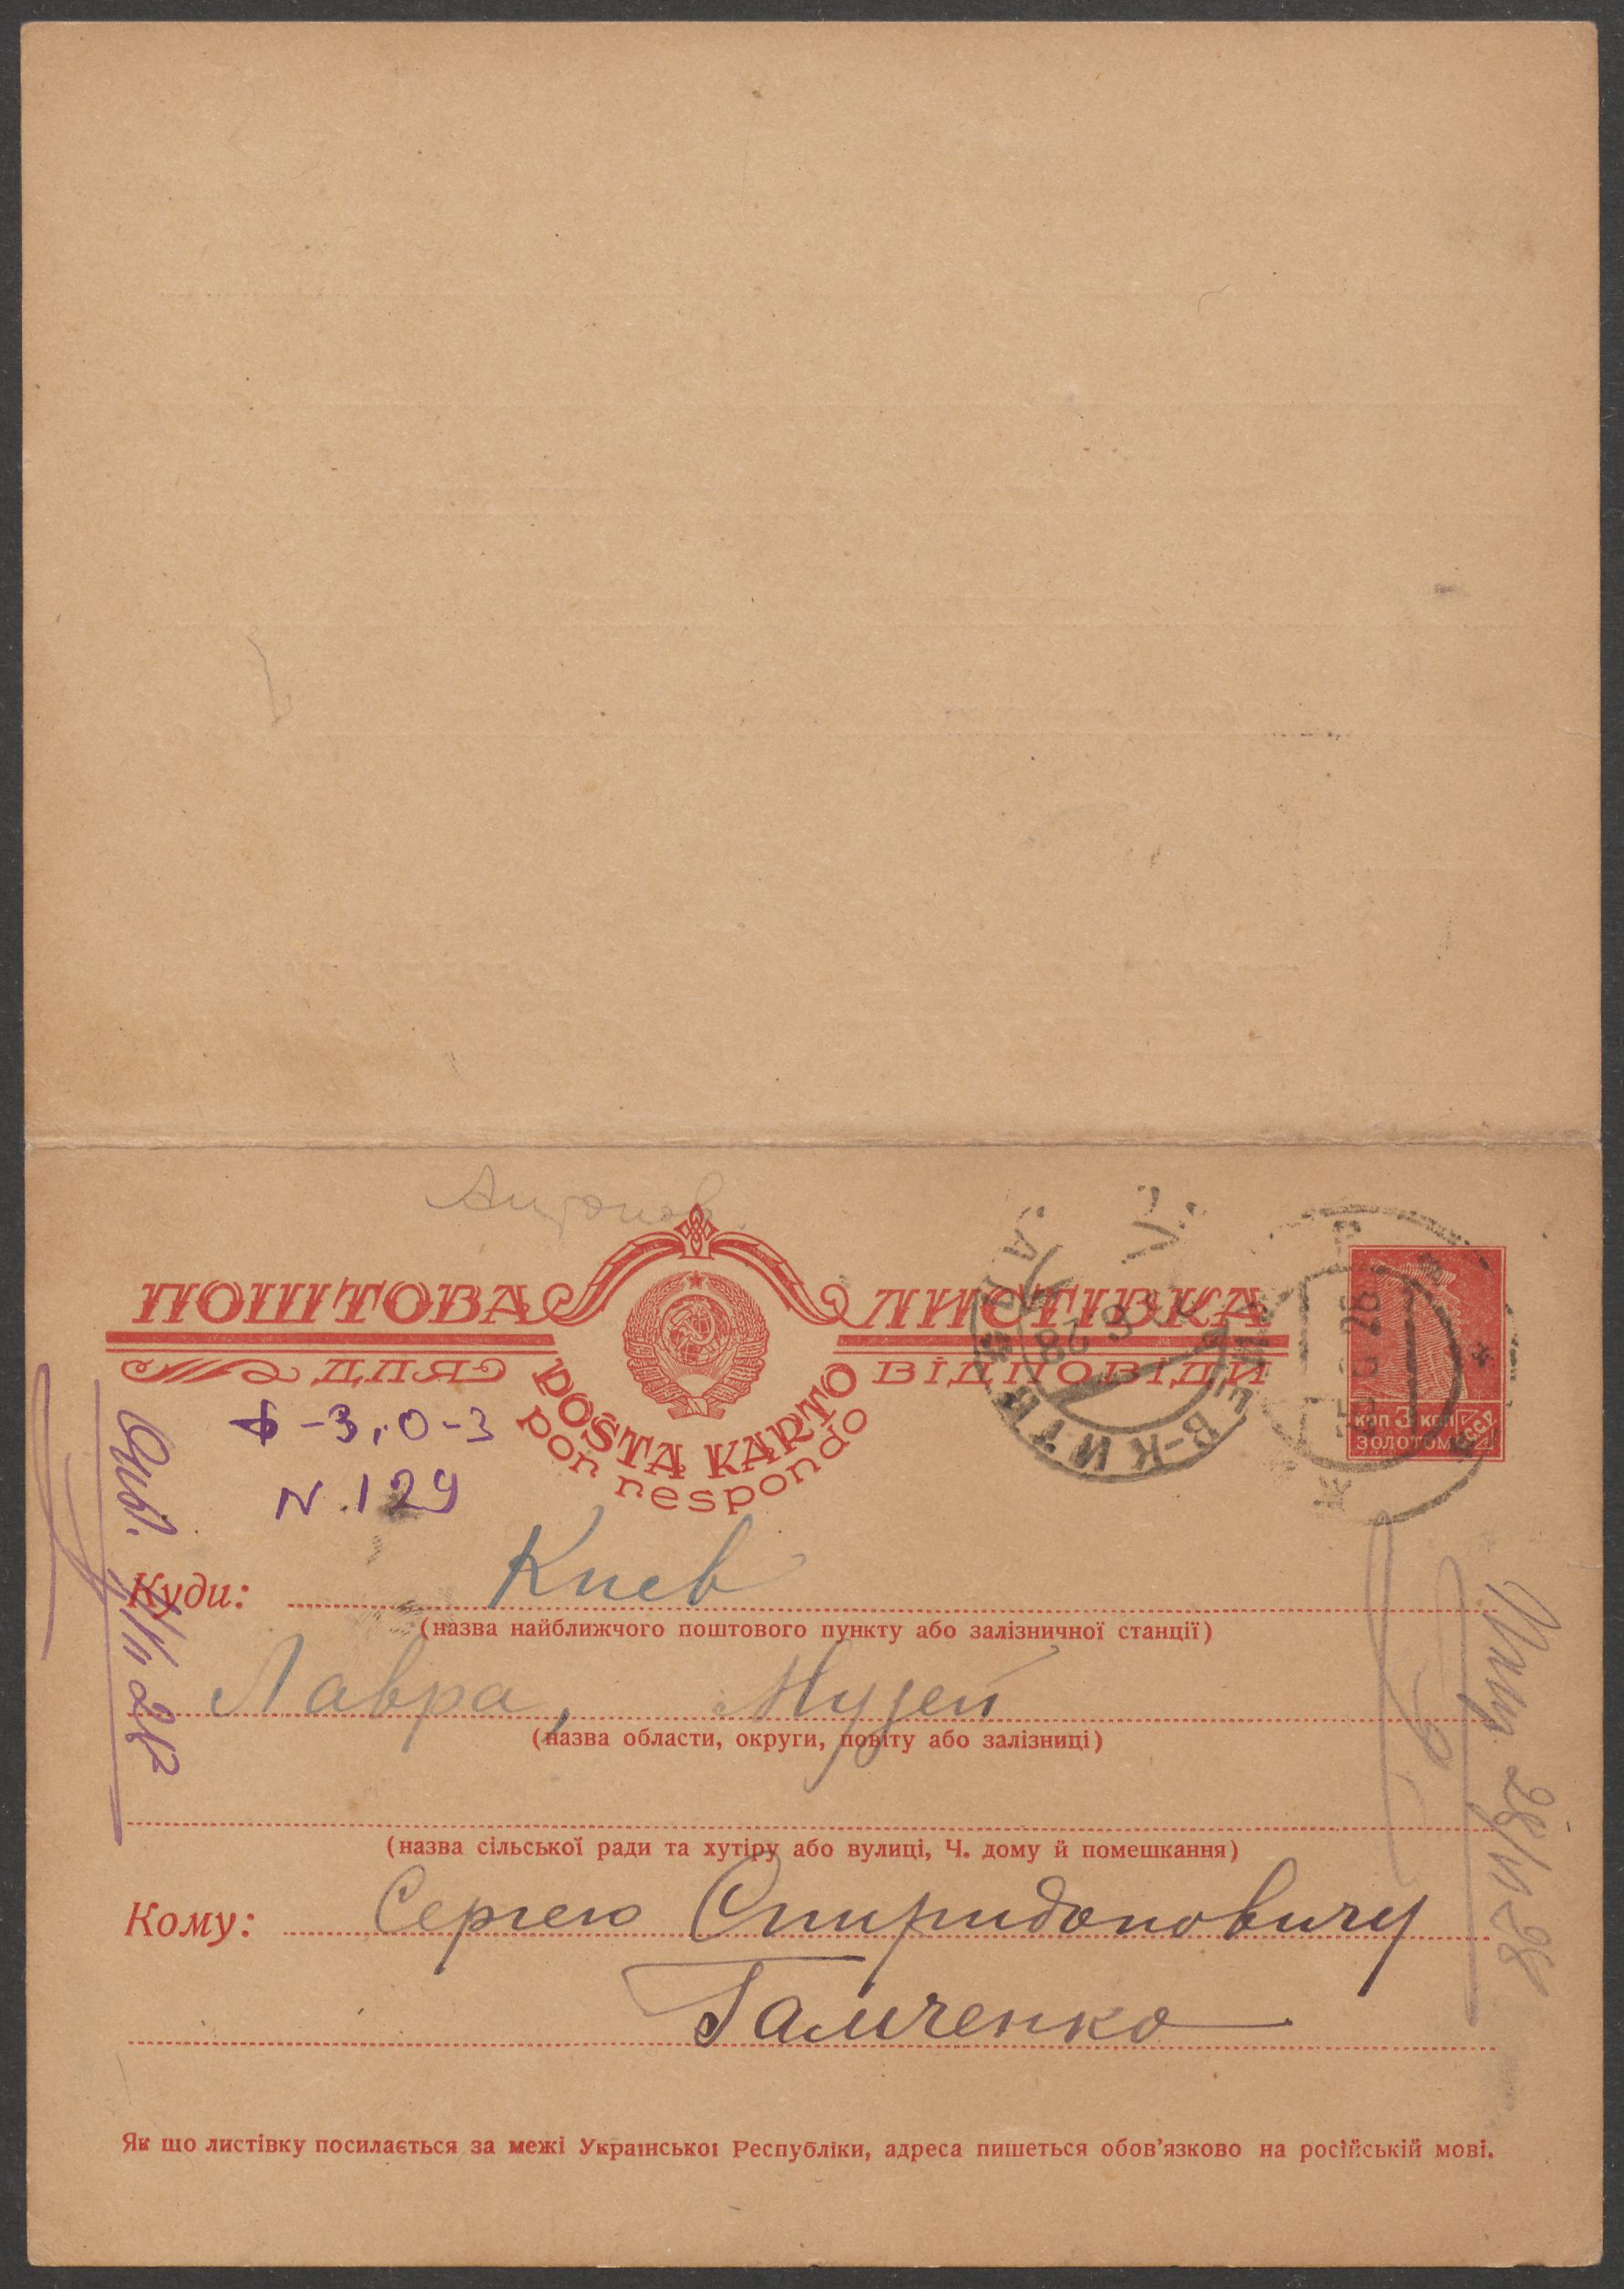 Антонов.
ПОШТОВА ЛИСТІВКА
ДЛЯ ВІДПОВІДИ
POŜTA KARTO
por respondo
коп 3 коп
ЗОЛОТОМ
СССР
Ф-3, О-3
N. 129
Куди: Киев
(назва найближчого поштового пункту або залізничної станції)
Лавра, Музей
(назва области, округи, повіту або залізниці)
(назва сільської ради та хутіру або вулиці, Ч. дому й помешкання)
Кому: Сергею Спиридоновичу
Гамченко
28/VI-28
Як що листівку посилається за межі Української Республіки, адреса пишеться обов'язково на російській мові.